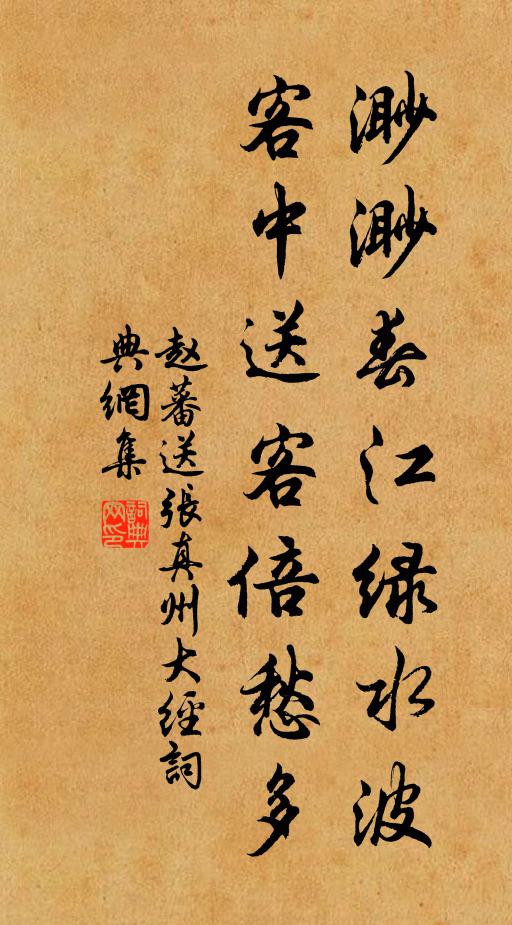 渺渺春江绿水波
客中送客倍愁多
赵蕃送張真州大經詞
典網集
詞典
网印